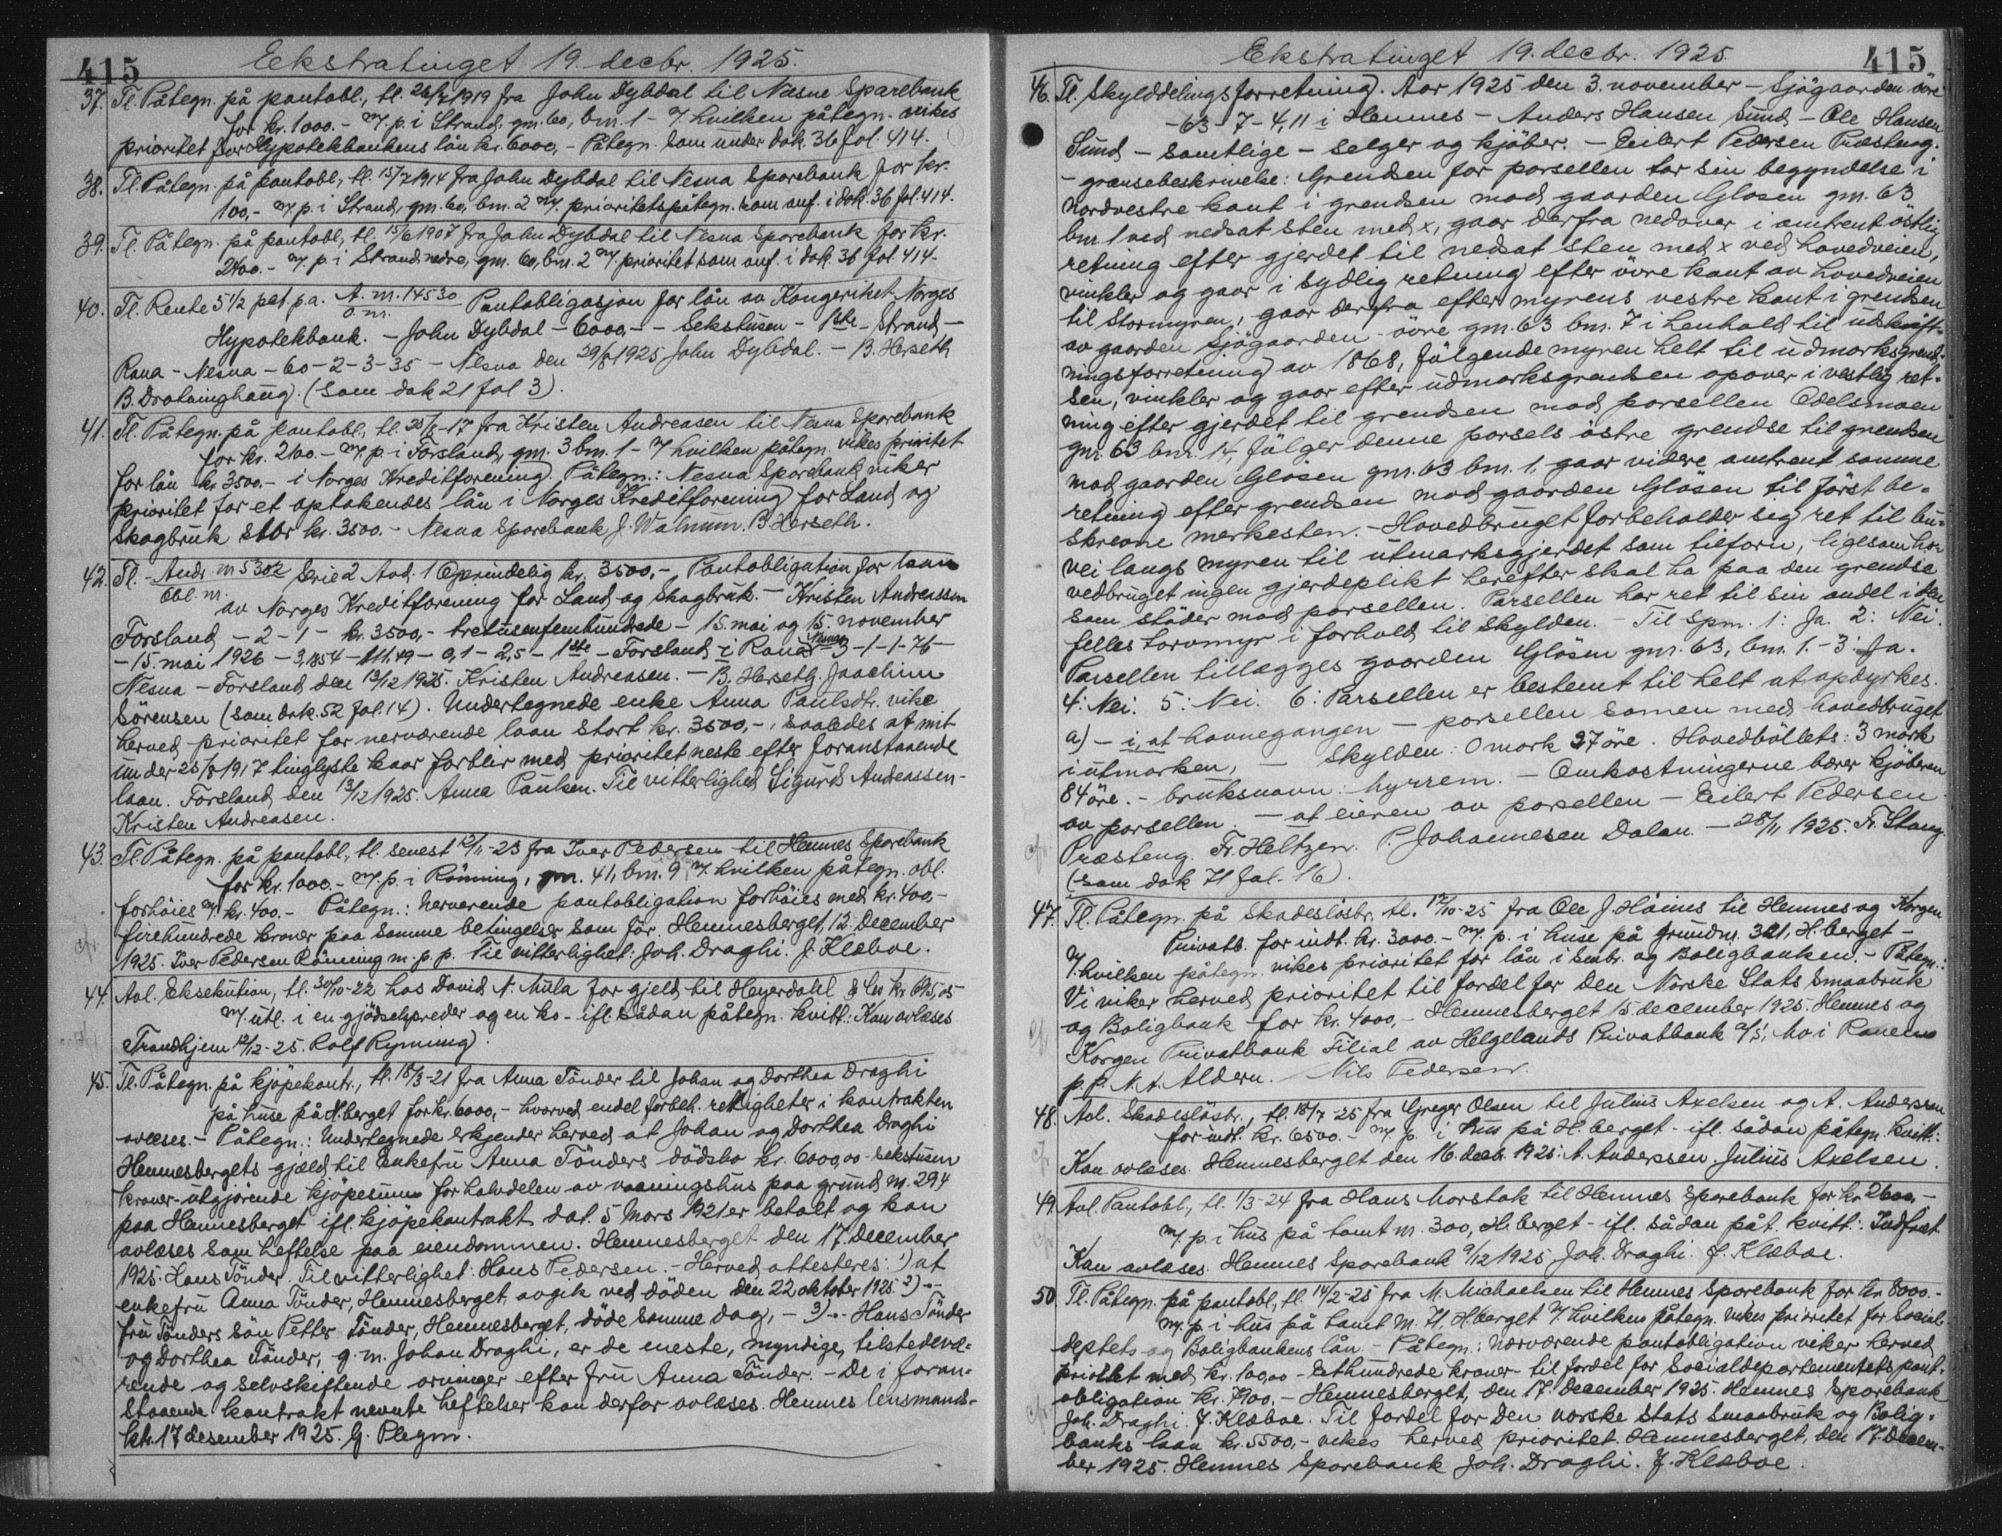 415
Ekstratinget 19. decbr. 1925.
37. Tl. Påtegn. på pantobl., tl. 26/7 1919 fra John Dybdal til Nesna Sparebank
for kr. 1000.- m/ p. i Strand, gm. 60, bm. 1 - v/ hvilken påtegn. vikes
prioritet for Hypotekbankens lån kr. 6000,- Påtegn. som under dok. 36 fol. 414.
38. Tl. Påtegn. på pantobl., tl. 15/7 1914 fra John Dybdal til Nesna Sparebank for kr.
100,- m/ p. i Strand, gm. 60, bm. 2 m/ prioritetspåtegn. som anf. i dok. 36 fol. 414.
39. Tl. Påtegn. på pantobl., tl. 15/6 1907 fra John Dybdal til Nesna Sparebank for kr.
2400.- m/ p. i Strand nedre, gm. 60, bm. 2 m/ prioritet som anf. i dok. 36 fol. 414.
40. Tl. Rente 5 1/2 pct. p.a. A. m. 14530 Pantobligasjon for lån av Kongeriket Norges
o. m.
Hypotekbank. - John Dybdal - 6000,- - Sekstusen - 1ste - Strand -
Rana - Nesna - 60 - 2 - 3 - 35 - Nesna den 29/8 1925 John Dybdal. - B. Herseth
B. Dratvinghaug. (som dok 21 fol 3).
41. Tl. Påtegn. på pantobl., tl. 25/8-17 fra Kristen Andreasen til Nesna Sparebank
for kr. 2100.- m/ p. i Forsland, gm. 3 bm. 1 - v/ hvilken påtegn. vikes prioritet
for lån kr 3500.- i Norges Kreditforening. Påtegn.: Nesna Sparebank viker
prioritet for et optakendes lån i Norges Kreditforening for Land og
Skogbruk stor kr. 3500.- Nesna Sparebank J. Walnum. B. Herseth.
42. Tl. Andr. m 5302 Serie 2 Avd. 1 Oprindelig kr. 3500,- Pantobligation for laan
Obl. m.
av Norges Kreditforening for Land og Skogbruk. - Kristen Andreassen
Forsland - 2 - 1 - kr. 3500,- tretusenfemhundrede - 15. mai og 15. november
- 15. mai 1926 - - 111,49 - 0,1 - 2,5 - 1ste - Forsland i Rana Nesna 3 - 1 - 1 - 76 -
Nesna - Forsland den 13/12 1925. Kristen Andreasen. - B. Herseth. Joachim
Sörensen (som dok. 52 fol. 14). Undertegnede enke Anna Paulsdtr. vike
herved prioritet for nerværende laan stort kr. 3500,-, saaledes at mit
under 25/8 1917 tinglyste kaar forblir med prioritet neste efter foranstaaende
laan. Forsland den 13/12 1925. Anna Paulsen. Til vitterlighed Sigurd Andreassen -
Kristen Andreasen.
43. Tl. Påtegn. på pantobl., tl. senest 12/11-23 fra Iver Pedersen til Hemnes Sparebank
for kr. 1000.- m/ p. i Rönning, gm. 41, bm. 9 v/ hvilken påtegn. obl.
forhöies m/ kr. 400.- Påtegn.: Nerverende pantobligation forhöies med kr. 400,-
firehundrede kroner paa samme betingelser som för. Hemnesberget, 12. December
1925. Iver Pedersen Rönning m. p. p. Til vitterlighet: Joh. Draghi. J. Klæboe.
44. Avl. Eksekution, tl. 30/10-22 hos David N. Mula for gjeld til Heyerdahl & Co kr
m/ utl. i en gjödselspreder og en ko - ifl. sådan påtegn. kvitt.: Kan avlæses
Trondhjem 12/12-25. Rolf Ryming.
45. Tl. Påtegn. på kjöpekontr., tl. 15/3-21 fra Anna Tönder til Johan og Dorthea Draghi
på huse på H.berget for kr. 6000,- hvorved endel forbeh. rettigheter i kontrakten
avlæses. - Påtegn.: Undertegnede erkjender herved at Johan og Dorthea Draghi
Hemnesbergets gjæld til Enkefru Anna Tönders dödsbo kr. 6000,00 sekstusen
kroner - utgjörende kjöpesum for halvdelen av vaaningshus paa grund m. 294
paa Hemnesberget ifl. kjöpekontrakt dat. 5 Mars 1921 er betalt og kan
avlæses som heftelse paa eiendommen. Hemnesberget den 17. December
1925. Hans Tönder. Til vitterlighet: Hans Pedersen. - Herved attesteres: 1) at
enkefru Anna Tönder, Hemnesberget, avgik ved döden den 22 oktober 1925. 2) -
fru Tönders sön Petter Tönder, Hemnesberget, döde samme dag, - 3) - Hans Tönder
og Dorthea Tönder, g. m. Johan Draghi, er de eneste, myndige, tilstedevæ-
rende og selvskiftende arvinger efter fru Anna Tönder. - De i foran-
staaende kontrakt nevnte heftelser kan derfor avlæses. Hemnes lensmands-
ktr. 17 desember 1925. G. Plegm.
415
Ekstratinget 19. decbr. 1925
46. Tl. Skylddelingsforretning. Aar 1925 den 3. november - Sjögaarden övre
- 63 - 7 - 4,11 i Hemnes - Anders Hansen Sund - Ole Hansen
Sund - samtlige - selger og kjöber. - Eilert Pedersen Præsteng.
- grænsebeskrivelse: Grendsen for parsellen tar sin begyndelse i
nordvestre kant i grendsen mod gaarden Glosen gm. 63
bm. 1 ved nedsat sten med x, gaar derfra nedover i omtrent östlig
retning efter gjerdet til nedsat sten med x ved hovedveien,
vinkler og gaar i sydlig retning efter övre kant av hovedveien
til Stormyren, gaar derfra efter myrens vestre kant i grendsen
av gaarden Sjögaarden övre gm. 63 bm. 7 i henhold til utskift-
ningsforretning av 1868, fölgende myren helt til udmarksgrend-
sen, vinkler og gaar efter udmarksgrendsen opover i vestlig ret-
ning efter gjerdet til grendsen mod parsellen Odelsmoen
gm. 63 bm. 14, fölger denne parsels östre grendse til grendsen
mod gaarden Glosen gm. 63 bm. 1, gaar videre omtrent samme
retning efter grendsen mod gaarden Glosen til först be-
skrevne merkesten. - Hovedbruget forbeholder sig ret til bu-
vei langs myren til utmarksgjerdet som tilforn, ligesom ho-
vedbruget ingen gjerdeplikt herefter skal ha paa den grendse
som stöder mod parsellen. Parsellen har ret til sin andel i den
felles torvmyr i forhold til skylden. - Til Spm. 1: Ja. 2: Nei.
Parsellen tillægges gaarden Glosen gm. 63, bm. 1. - 3: Ja.
4: Nei. 5: Nei. 6: Parsellen er bestemt til helt at opdyrkes.
a) - i, at havnegangen - parsellen samen med hovedbruget
i utmarken, - Skylden: 0 mark 27 öre. Hovedböllets: 3 mark
84 öre. - bruksnavn: hyrrem. - Omkostningerne bærer kjöberen
av parsellen. - at eieren av parsellen - Eilert Pedersen
Præsteng. Fr. Heltzen. P. Johannesen Dalen. - 28/11 1925. Fr. Stang.
(som dok 71 fol. 16).
47. Tl. Påtegn. på Skadeslösbr. tl. 17/10-25 fra Ole J. Høines til Hemnes og Korgen
Privatb. for indt. kr. 3000.- m/ p. i huse på grundnr. 321, H.berget -
v/ hvilken påtegn. vikes prioritet for lån i Småbr. og Boligbanken. - Påtegn.:
Vi viker herved prioritet til fordel for Den Norske Stats Smaabruk
og Boligbank for kr. 4000,- Hemnesberget 15. december 1925. Hemnes og
Korgen Privatbank Filial av Helgelands Privatbank a/s, Mo i Ranen
p. p. N. A. Aldern. Nils Pedersen.
48. Avl. Skadeslösbr., tl. 18/7-25 fra Greger Olsen til Julius Axelsen og A. Anderssen
for indt. kr. 6500.- m/ p. i hus på H.berget - ifl. sådan påtegn. kvitt.:
Kan avlæses. Hemnesberget den 16. decb. 1925. A. Anderssen Julius Axelsen.
49. Avl. Pantobl., tl. 1/3-24 fra Hans Morstak til Hemnes Sparebank for kr 2600,-
m/ p. i hus på tomt m. 300, H.berget - ifl. sådan påt. kvitt.: Indfriet.
Kan avlæses. Hemnes Sparebank 9/12 1925 Joh. Draghi. J. Klæboe.
50. Tl. Påtegn. på pantobl., tl. 14/2-25 fra M. Michaelsen til Hemnes Sparebank for kr 8000.-
m/ p. i hus på tomt m. 71, H.berget v/ hvilken påtegn. vikes prioritet for Social-
deptets og Boligbankens lån - Påtegn.: Nærværende pantobligation viker herved
prioritet med kr. 100,00 - Ethundrede kroner til fordel for Socialdepartementets pant-
obligation kr. 7900.- Hemnesberget, den 17. December 1925. Hemnes Sparebank
Joh. Draghi. J. Klæboe. Til fordel for Den norske Stats Smaabruk og Bolig-
banks laan kr. 5500,- vikes herved prioritet. Hemnesberget, den 17. Decem-
ber 1925. Hemnes Sparebank Joh. Draghi. J. Klæboe.